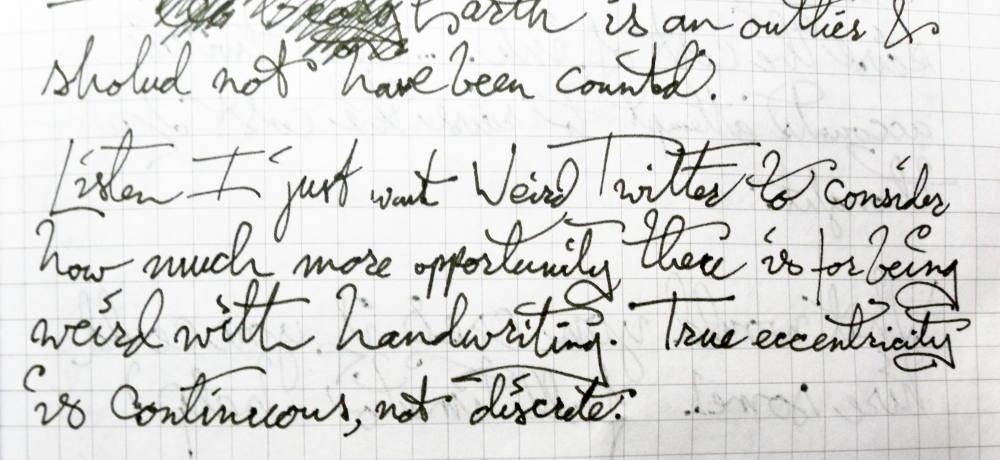 Earth is an outlier &
sholud not have been countd.
Listen I just want Weird Twitter to consider
how much more opportunity there is for being
weird with handwriting. True eccentricity
is continuous, not discrete.